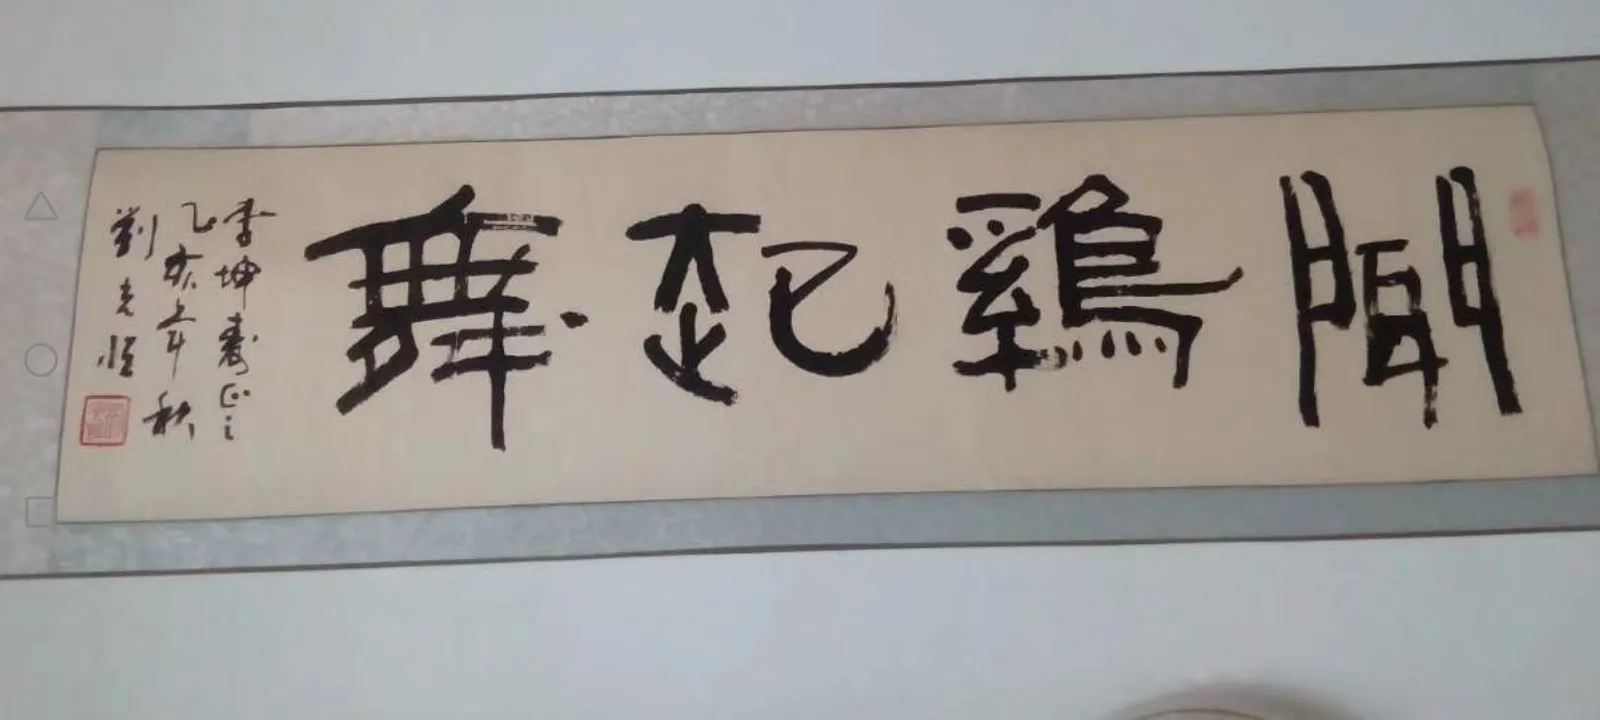 聞鷄起舞
李坤壽正之
乙亥年秋
劉